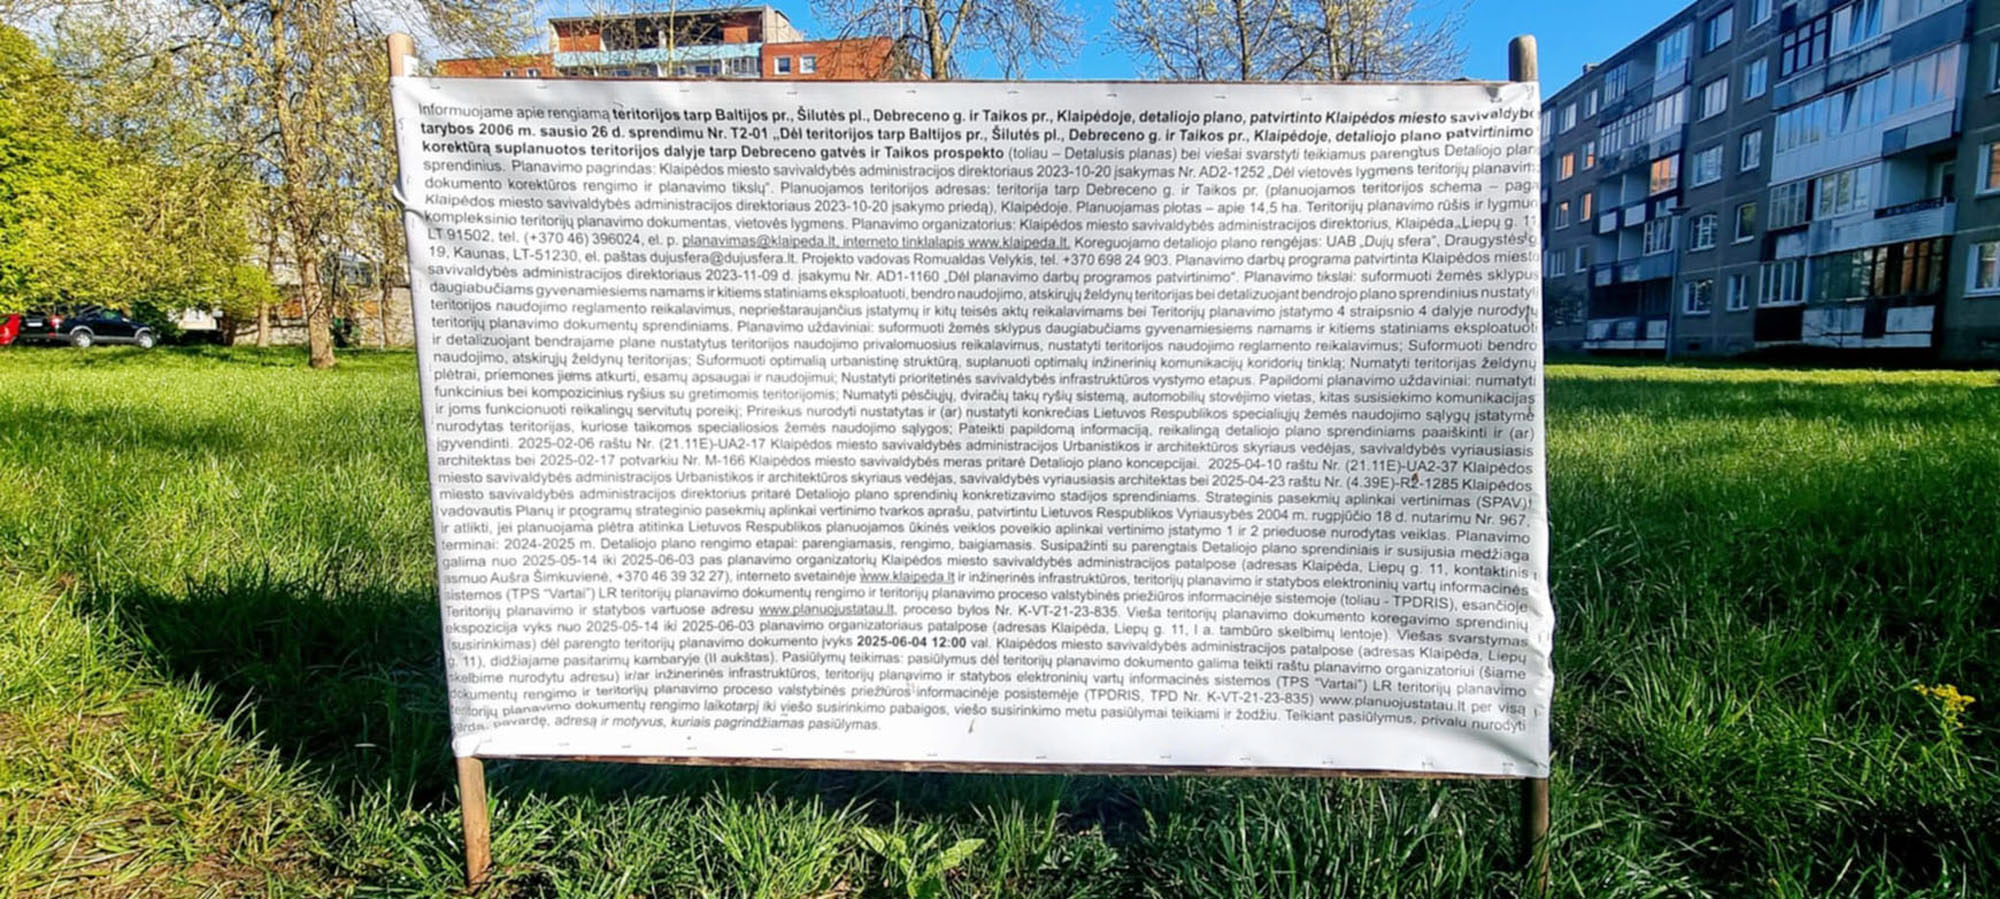 Informuojame apie rengiamą teritorijos tarp Baltijos pr., Šilutės pl., Debreceno g. ir Taikos pr., Klaipėdoje, detaliojo plano, patvirtinto Klaipėdos miesto savivaldybė
tarybos 2006 m. sausio 26 d. sprendimu Nr. T2-01 „Dėl teritorijos tarp Baltijos pr., Šilutės pl., Debreceno g. ir Taikos pr., Klaipėdoje, detaliojo plano patvirtinimo
korektūrą suplanuotos teritorijos dalyje tarp Debreceno gatvės ir Taikos prospekto (toliau – Detalusis planas) bei viešai svarstyti teikiamus parengtus Detaliojo plan
sprendinius. Planavimo pagrindas: Klaipėdos miesto savivaldybės administracijos direktoriaus 2023-10-20 įsakymas Nr. AD2-1252 „Dėl vietovės lygmens teritorijų planavim
dokumento korektūros rengimo ir planavimo tikslų“. Planuojamos teritorijos adresas: teritorija tarp Debreceno g. ir Taikos pr. (planuojamos teritorijos schema – paga
Klaipėdos miesto savivaldybės administracijos direktoriaus 2023-10-20 įsakymo priedą), Klaipėdoje. Planuojamas plotas – apie 14,5 ha. Teritorijų planavimo rūšis ir lygmuo
kompleksinio teritorijų planavimo dokumentas, vietovės lygmens. Planavimo organizatorius: Klaipėdos miesto savivaldybės administracijos direktorius, Klaipėda, Liepų g. 11
LT 91502, tel. (+370 46) 396024, el. p. planavimas@klaipeda.lt, interneto tinklalapis www.klaipeda.lt. Koreguojamo detaliojo plano rengėjas: UAB „Dujų sfera“, Draugystės g
19, Kaunas, LT-51230, el. paštas dujusfera@dujusfera.lt. Projekto vadovas Romualdas Velykis, tel. +370 698 24 903. Planavimo darbų programa patvirtinta Klaipėdos miesto
savivaldybės administracijos direktoriaus 2023-11-09 d. įsakymu Nr. AD1-1160 „Dėl planavimo darbų programos patvirtinimo“. Planavimo tikslai: suformuoti žemės sklypus
daugiabučiams gyvenamiesiems namams ir kitiems statiniams eksploatuoti, bendro naudojimo, atskirųjų želdynų teritorijas bei detalizuojant bendrojo plano sprendinius nustatyti
teritorijos naudojimo reglamento reikalavimus, neprieštaraujančius įstatymų ir kitų teisės aktų reikalavimams bei Teritorijų planavimo įstatymo 4 straipsnio 4 dalyje nurodytų
teritorijų planavimo dokumentų sprendiniams. Planavimo uždaviniai: suformuoti žemės sklypus daugiabučiams gyvenamiesiems namams ir kitiems statiniams eksploatuoti
ir detalizuojant bendrajame plane nustatytus teritorijos naudojimo privalomuosius reikalavimus, nustatyti teritorijos naudojimo reglamento reikalavimus; Suformuoti bendro
naudojimo, atskirųjų želdynų teritorijas; Suformuoti optimalią urbanistinę struktūrą, suplanuoti optimalų inžinerinių komunikacijų koridorių tinklą; Numatyti teritorijas želdynų
plėtrai, priemones jiems atkurti, esamų apsaugai ir naudojimui; Nustatyti prioritetinės savivaldybės infrastruktūros vystymo etapus. Papildomi planavimo uždaviniai: numatyti
funkcinius bei kompozicinius ryšius su gretimomis teritorijomis; Numatyti pėsčiųjų, dviračių takų ryšių sistemą, automobilių stovėjimo vietas, kitas susisiekimo komunikacijas
ir joms funkcionuoti reikalingų servitutų poreikį; Prireikus nurodyti nustatytas ir (ar) nustatyti konkrečias Lietuvos Respublikos specialiųjų žemės naudojimo sąlygų įstatyme
nurodytas teritorijas, kuriose taikomos specialiosios žemės naudojimo sąlygos; Pateikti papildomą informaciją, reikalingą detaliojo plano sprendiniams paaiškinti ir (ar)
įgyvendinti. 2025-02-06 raštu Nr. (21.11E)-UA2-17 Klaipėdos miesto savivaldybės administracijos Urbanistikos ir architektūros skyriaus vedėjas, savivaldybės vyriausiasis
architektas bei 2025-02-17 potvarkiu Nr. M-166 Klaipėdos miesto savivaldybės meras pritarė Detaliojo plano koncepcijai. 2025-04-10 raštu Nr. (21.11E)-UA2-37 Klaipėdos
miesto savivaldybės administracijos Urbanistikos ir architektūros skyriaus vedėjas, savivaldybės vyriausiasis architektas bei 2025-04-23 raštu Nr. (4.39E)-R2-1285 Klaipėdos
miesto savivaldybės administracijos direktorius pritarė Detaliojo plano sprendinių konkretizavimo stadijos sprendiniams. Strateginis pasekmių aplinkai vertinimas (SPAV)
vadovautis Planų ir programų strateginio pasekmių aplinkai vertinimo tvarkos aprašu, patvirtintu Lietuvos Respublikos Vyriausybės 2004 m. rugpjūčio 18 d. nutarimu Nr. 967,
ir atlikti, jei planuojama plėtra atitinka Lietuvos Respublikos planuojamos ūkinės veiklos poveikio aplinkai vertinimo įstatymo 1 ir 2 prieduose nurodytas veiklas. Planavimo
terminai: 2024-2025 m. Detaliojo plano rengimo etapai: parengiamasis, rengimo, baigiamasis. Susipažinti su parengtais Detaliojo plano sprendiniais ir susijusia medžiaga
galima nuo 2025-05-14 iki 2025-06-03 pas planavimo organizatorių Klaipėdos miesto savivaldybės administracijos patalpose (adresas Klaipėda, Liepų g. 11, kontaktinis
asmuo Aušra Šimkuvienė, +370 46 39 32 27), interneto svetainėje www.klaipeda.lt ir inžinerinės infrastruktūros, teritorijų planavimo ir statybos elektroninių vartų informacinės
sistemos (TPS "Vartai") LR teritorijų planavimo dokumentų rengimo ir teritorijų planavimo proceso valstybinės priežiūros informacinėje sistemoje (toliau - TPDRIS), esančioje
Teritorijų planavimo ir statybos vartuose adresu www.planuojustatau.lt, proceso bylos Nr. K-VT-21-23-835. Vieša teritorijų planavimo dokumento koregavimo sprendinių
ekspozicija vyks nuo 2025-05-14 iki 2025-06-03 planavimo organizatoriaus patalpose (adresas Klaipėda, Liepų g. 11, I a. tambūro skelbimų lentoje). Viešas svarstymas
(susirinkimas) dėl parengto teritorijų planavimo dokumento įvyks 2025-06-04 12:00 val. Klaipėdos miesto savivaldybės administracijos patalpose (adresas Klaipėda, Liepų
g. 11), didžiajame pasitarimų kambaryje (II aukštas). Pasiūlymų teikimas: pasiūlymus dėl teritorijų planavimo dokumento galima teikti raštu planavimo organizatoriui (šiame
skelbime nurodytu adresu) ir/ar inžinerinės infrastruktūros, teritorijų planavimo ir statybos elektroninių vartų informacinės sistemos (TPS "Vartai") LR teritorijų planavimo
dokumentų rengimo ir teritorijų planavimo proceso valstybinės priežiūros informacinėje posistemėje (TPDRIS, TPD Nr. K-VT-21-23-835) www.planuojustatau.lt per visą
teritorijų planavimo dokumentų rengimo laikotarpį iki viešo susirinkimo pabaigos, viešo susirinkimo metu pasiūlymai teikiami ir žodžiu. Teikiant pasiūlymus, privalu nurodyti
vardą, pavardę, adresą ir motyvus, kuriais pagrindžiamas pasiūlymas.